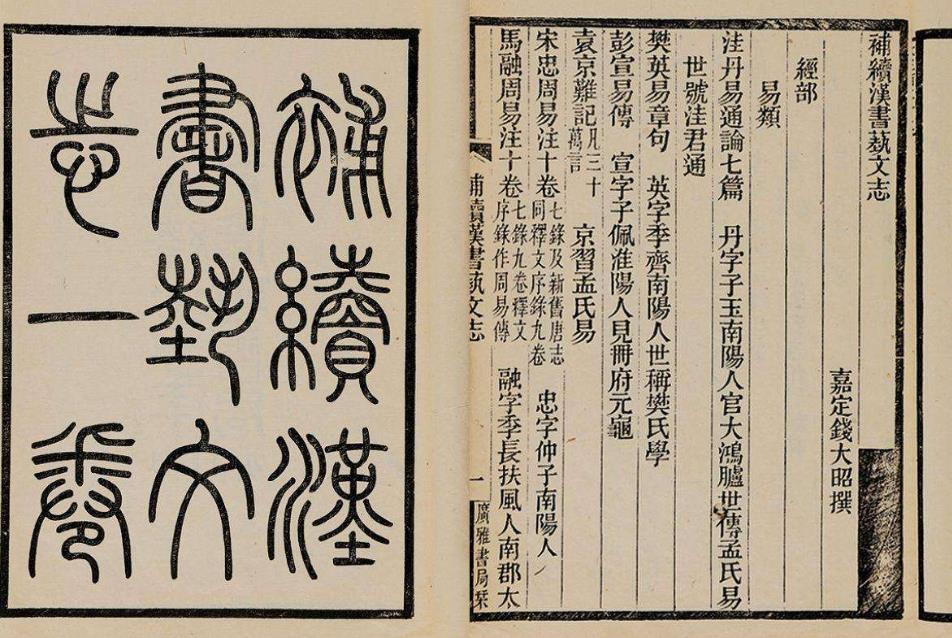 補續漢
書藝文
志一卷
補續漢書藝文志
嘉定錢大昭撰
經部
易類
洼丹易通論七篇 丹字子玉南陽人官大鴻臚世傳孟氏易
世號洼君通
樊英易章句 英字季齊南陽人世稱樊氏學
彭宣易傳 宣字子佩淮陽人見冊府元龜
袁京難記凡三十萬言 京習孟氏易
宋忠周易注十卷七錄及新舊唐志同釋文序錄九卷 忠字仲子南陽人
馬融周易注十卷七錄九卷釋文序錄作周易傳 融字季長扶風人南郡太
補續漢書藝文志
一
廣雅書局栞